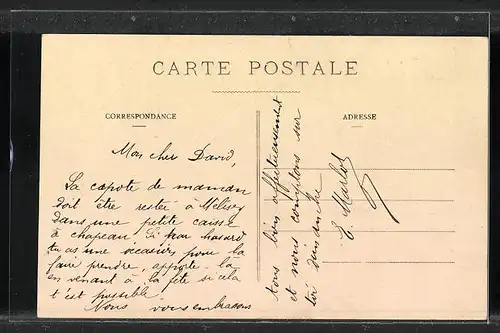 CARTE POSTALE
CORRESPONDANCE
ADRESSE
Mon cher David,
La capote de maman
doit être restée à Mélisey
dans une petite caisse
à chapeau. Si par hasard
tu as une occasion pour la
faire prendre, apporte-la
en venant à la fête si cela
t'est possible.
Nous vous embrassons
tous bien affectueusement
et nous comptons sur
toi dimanche
E. Marlot